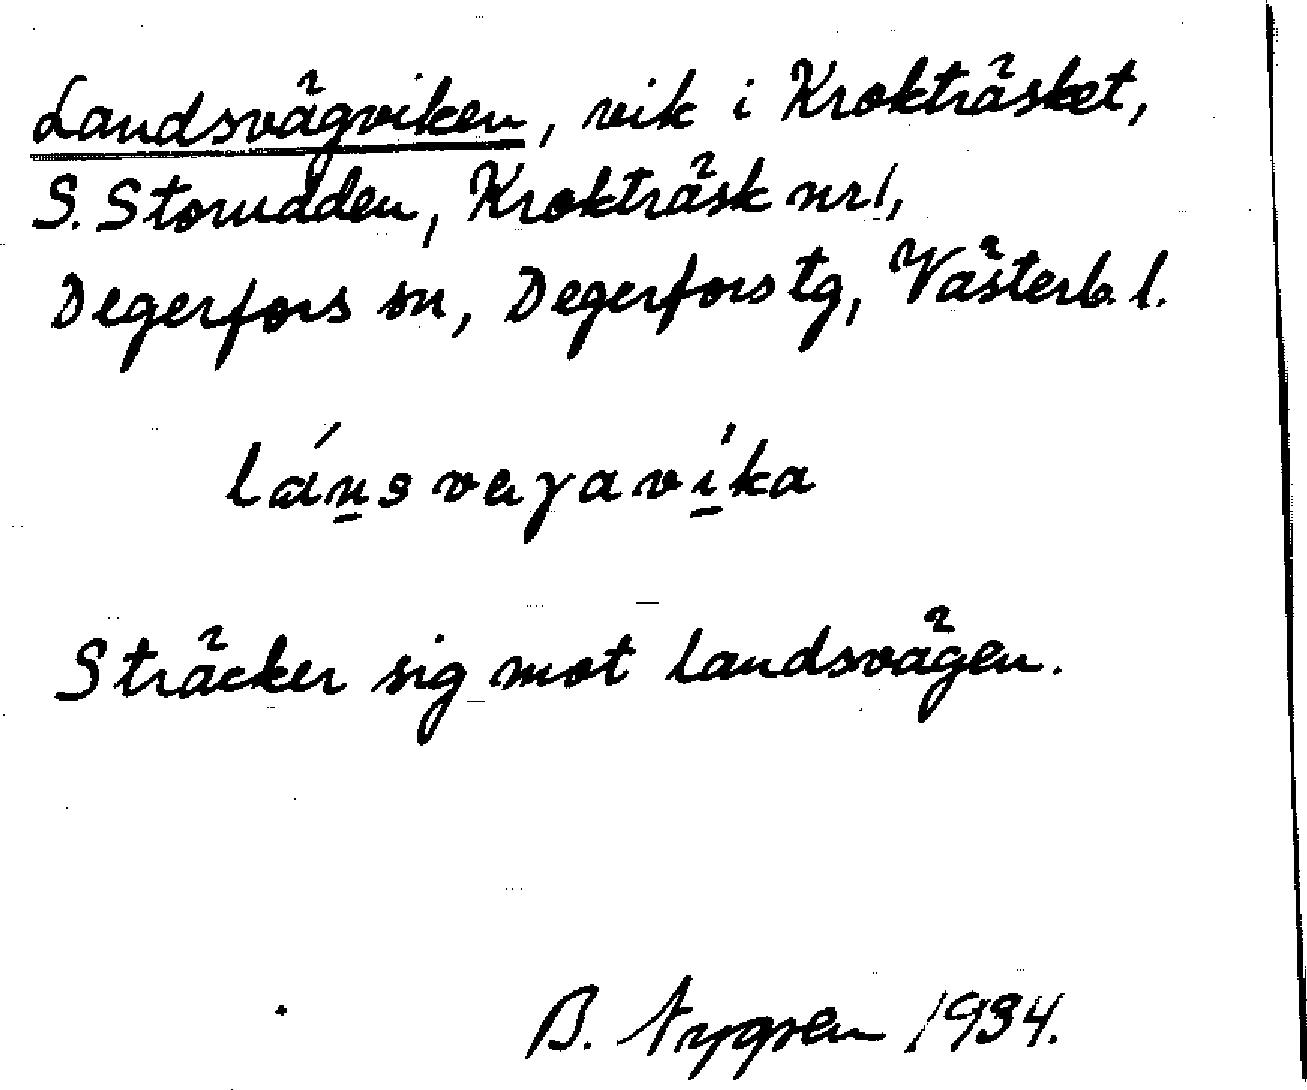 Landsvägviken, vik i Krokträsket,
S. Storudden, Krokträsk nr 1,
Degerfors sn, Degerfors tg, Västerb. l.
lánsvaγavíka
Sträcker sig mot landsvägen.
B. Nygren 1934.